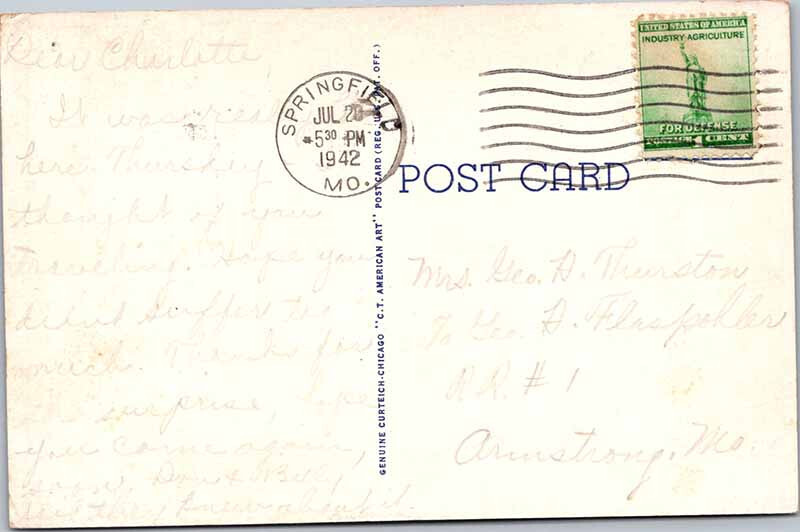 Dear Charlotte,
It was
here Thursday
thought of you
traveling. Hope you
didnt suffer too
much. Thanks for
the surprise, hope
you come again,
soon. Don & Billy
they knew about it.
SPRINGFIELD
JUL 20
5 30 PM
1942
MO.
GENUINE CURTEICH-CHICAGO "C.T. AMERICAN ART" POST CARD (REG. U.S. PAT. OFF.)
UNITED STATES OF AMERICA
INDUSTRY·AGRICULTURE
FOR DEFENSE
POSTAGE 1 CENT
POST CARD
Mrs. Geo. H. Thurston
% Geo. H. Flaspohler
R.R. # 1
Armstrong, Mo.